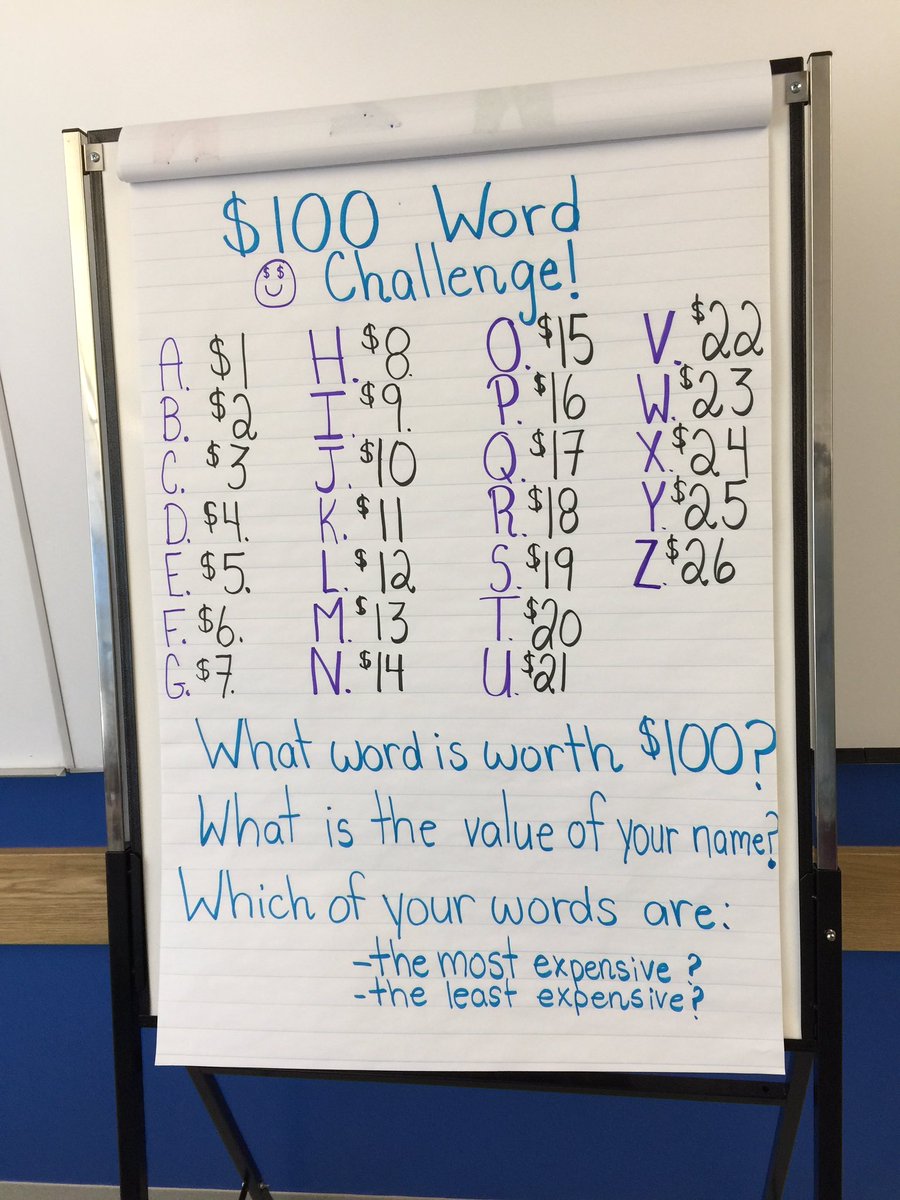 $100 Word
Challenge!
A. $1 H. $8. O. $15 V. $22
B. $2 I. $9. P. $16 W. $23
C. $3 J. $10 Q. $17 X. $24
D. $4. K. $11 R. $18 Y. $25
E. $5. L. $12 S. $19 Z. $26
F. $6. M. $13 T. $20
G. $7. N. $14 U. $21
What word is worth $100?
What is the value of your name?
Which of your words are:
-the most expensive?
-the least expensive?